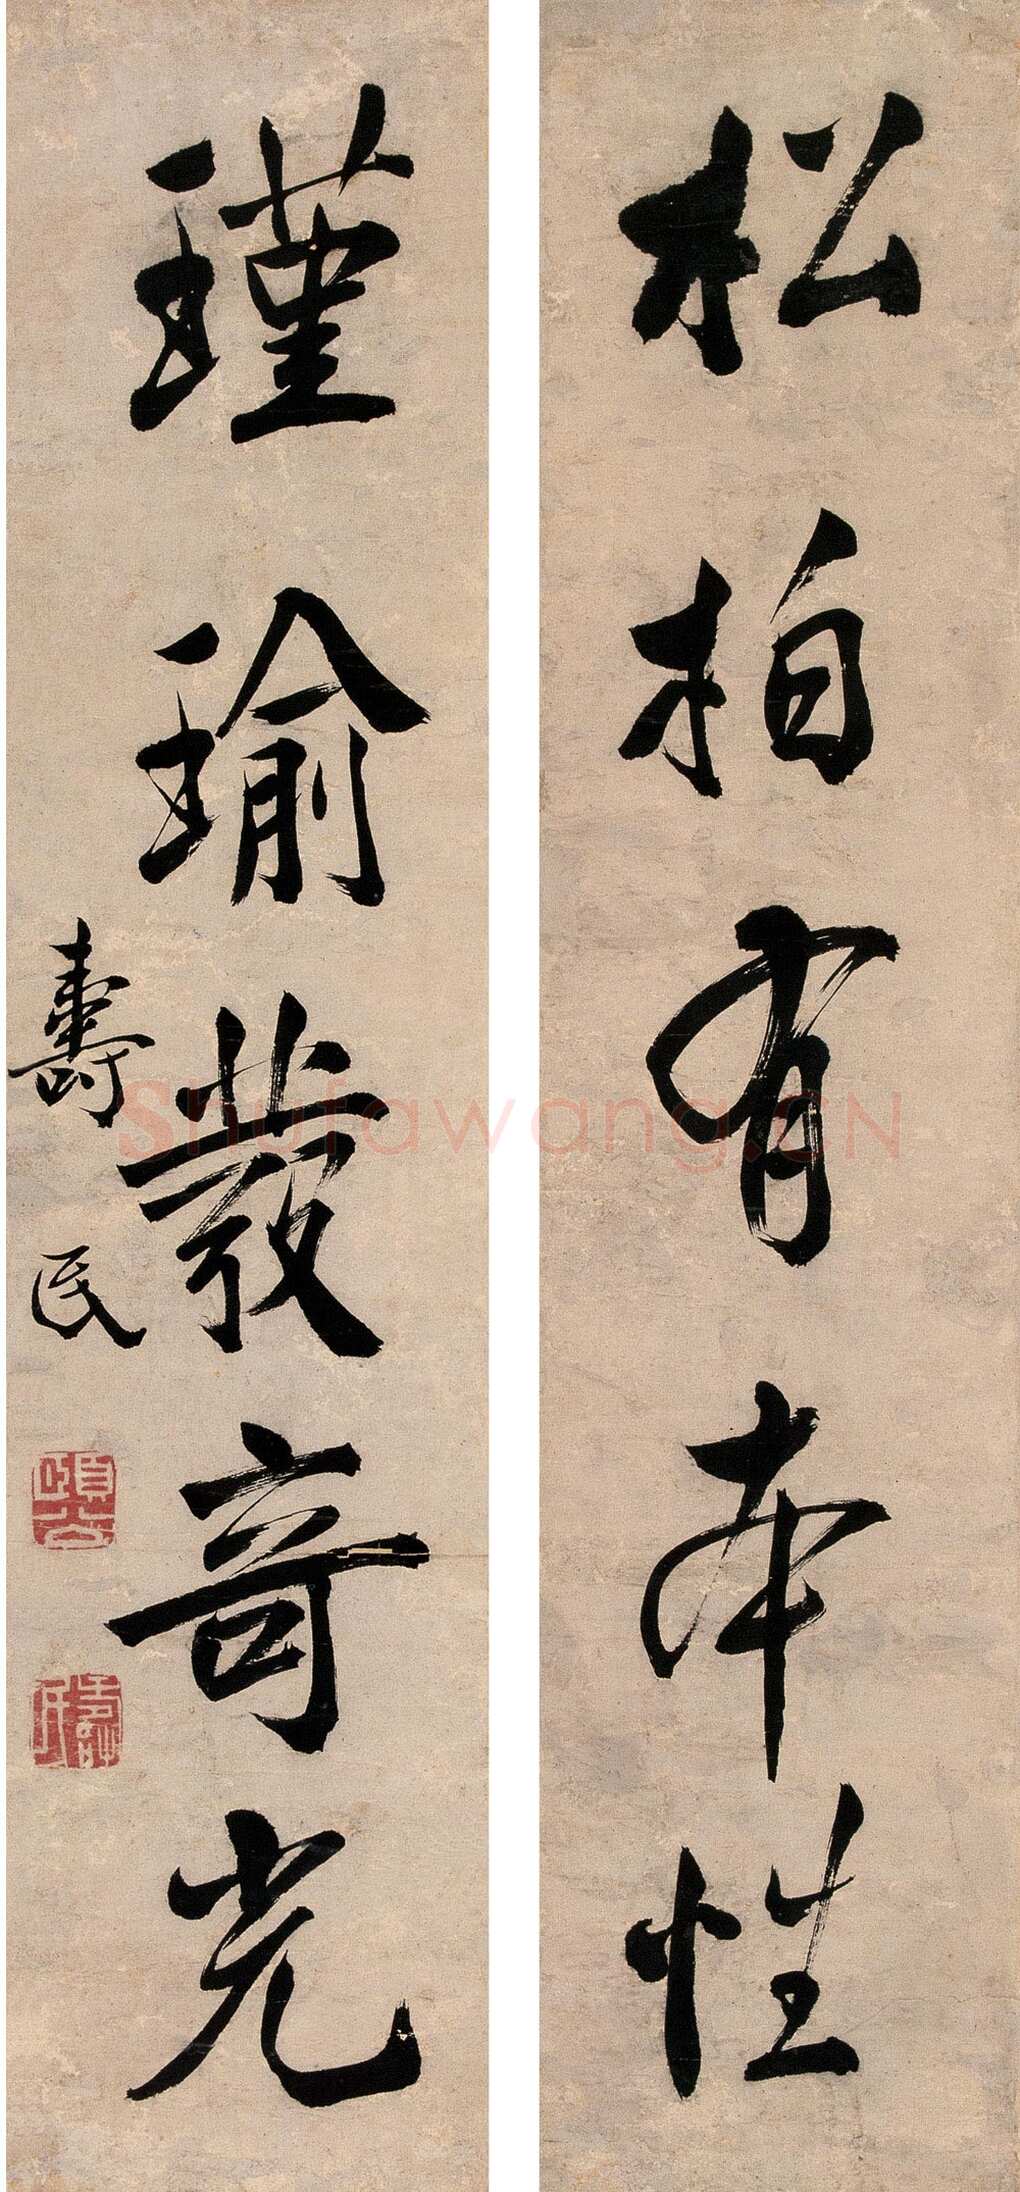 松柏有本性
瑾瑜發奇光
壽民
Shufawang.CN